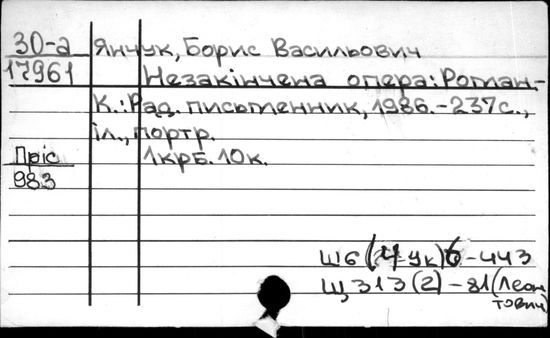 30-а Янчук, Борис Васильович
17961 Незакінчена опера: Роман.-
К.: Рад. письменник, 1986.-237с.,
іл., портр.
Пріс 1крб. 10к.
983
Ш6(4Ук)6-443
Щ313(2)-81(Леон
тович)